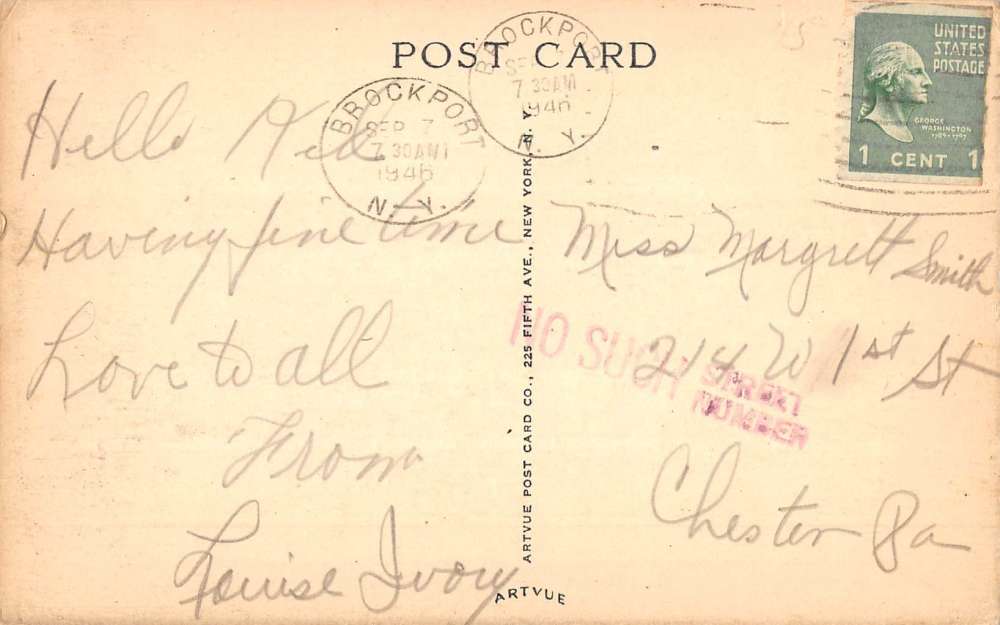 POST CARD
BROCKPORT
SEP 7
7 30 AM
1946
N. Y.
BROCKPORT
SEP
7 30 AM
1946
N. Y.
UNITED
STATES
POSTAGE
GEORGE
WASHINGTON
1789-1797
1 CENT 1
Hello Kid
Having fine time
Love to all
From
Louise Ivory
ARTVUE POST CARD CO., 225 FIFTH AVE., NEW YORK, N. Y.
ARTVUE
Miss Margrett Smith
214 W 1st St
Chester Pa
NO SUCH STREET
NUMBER